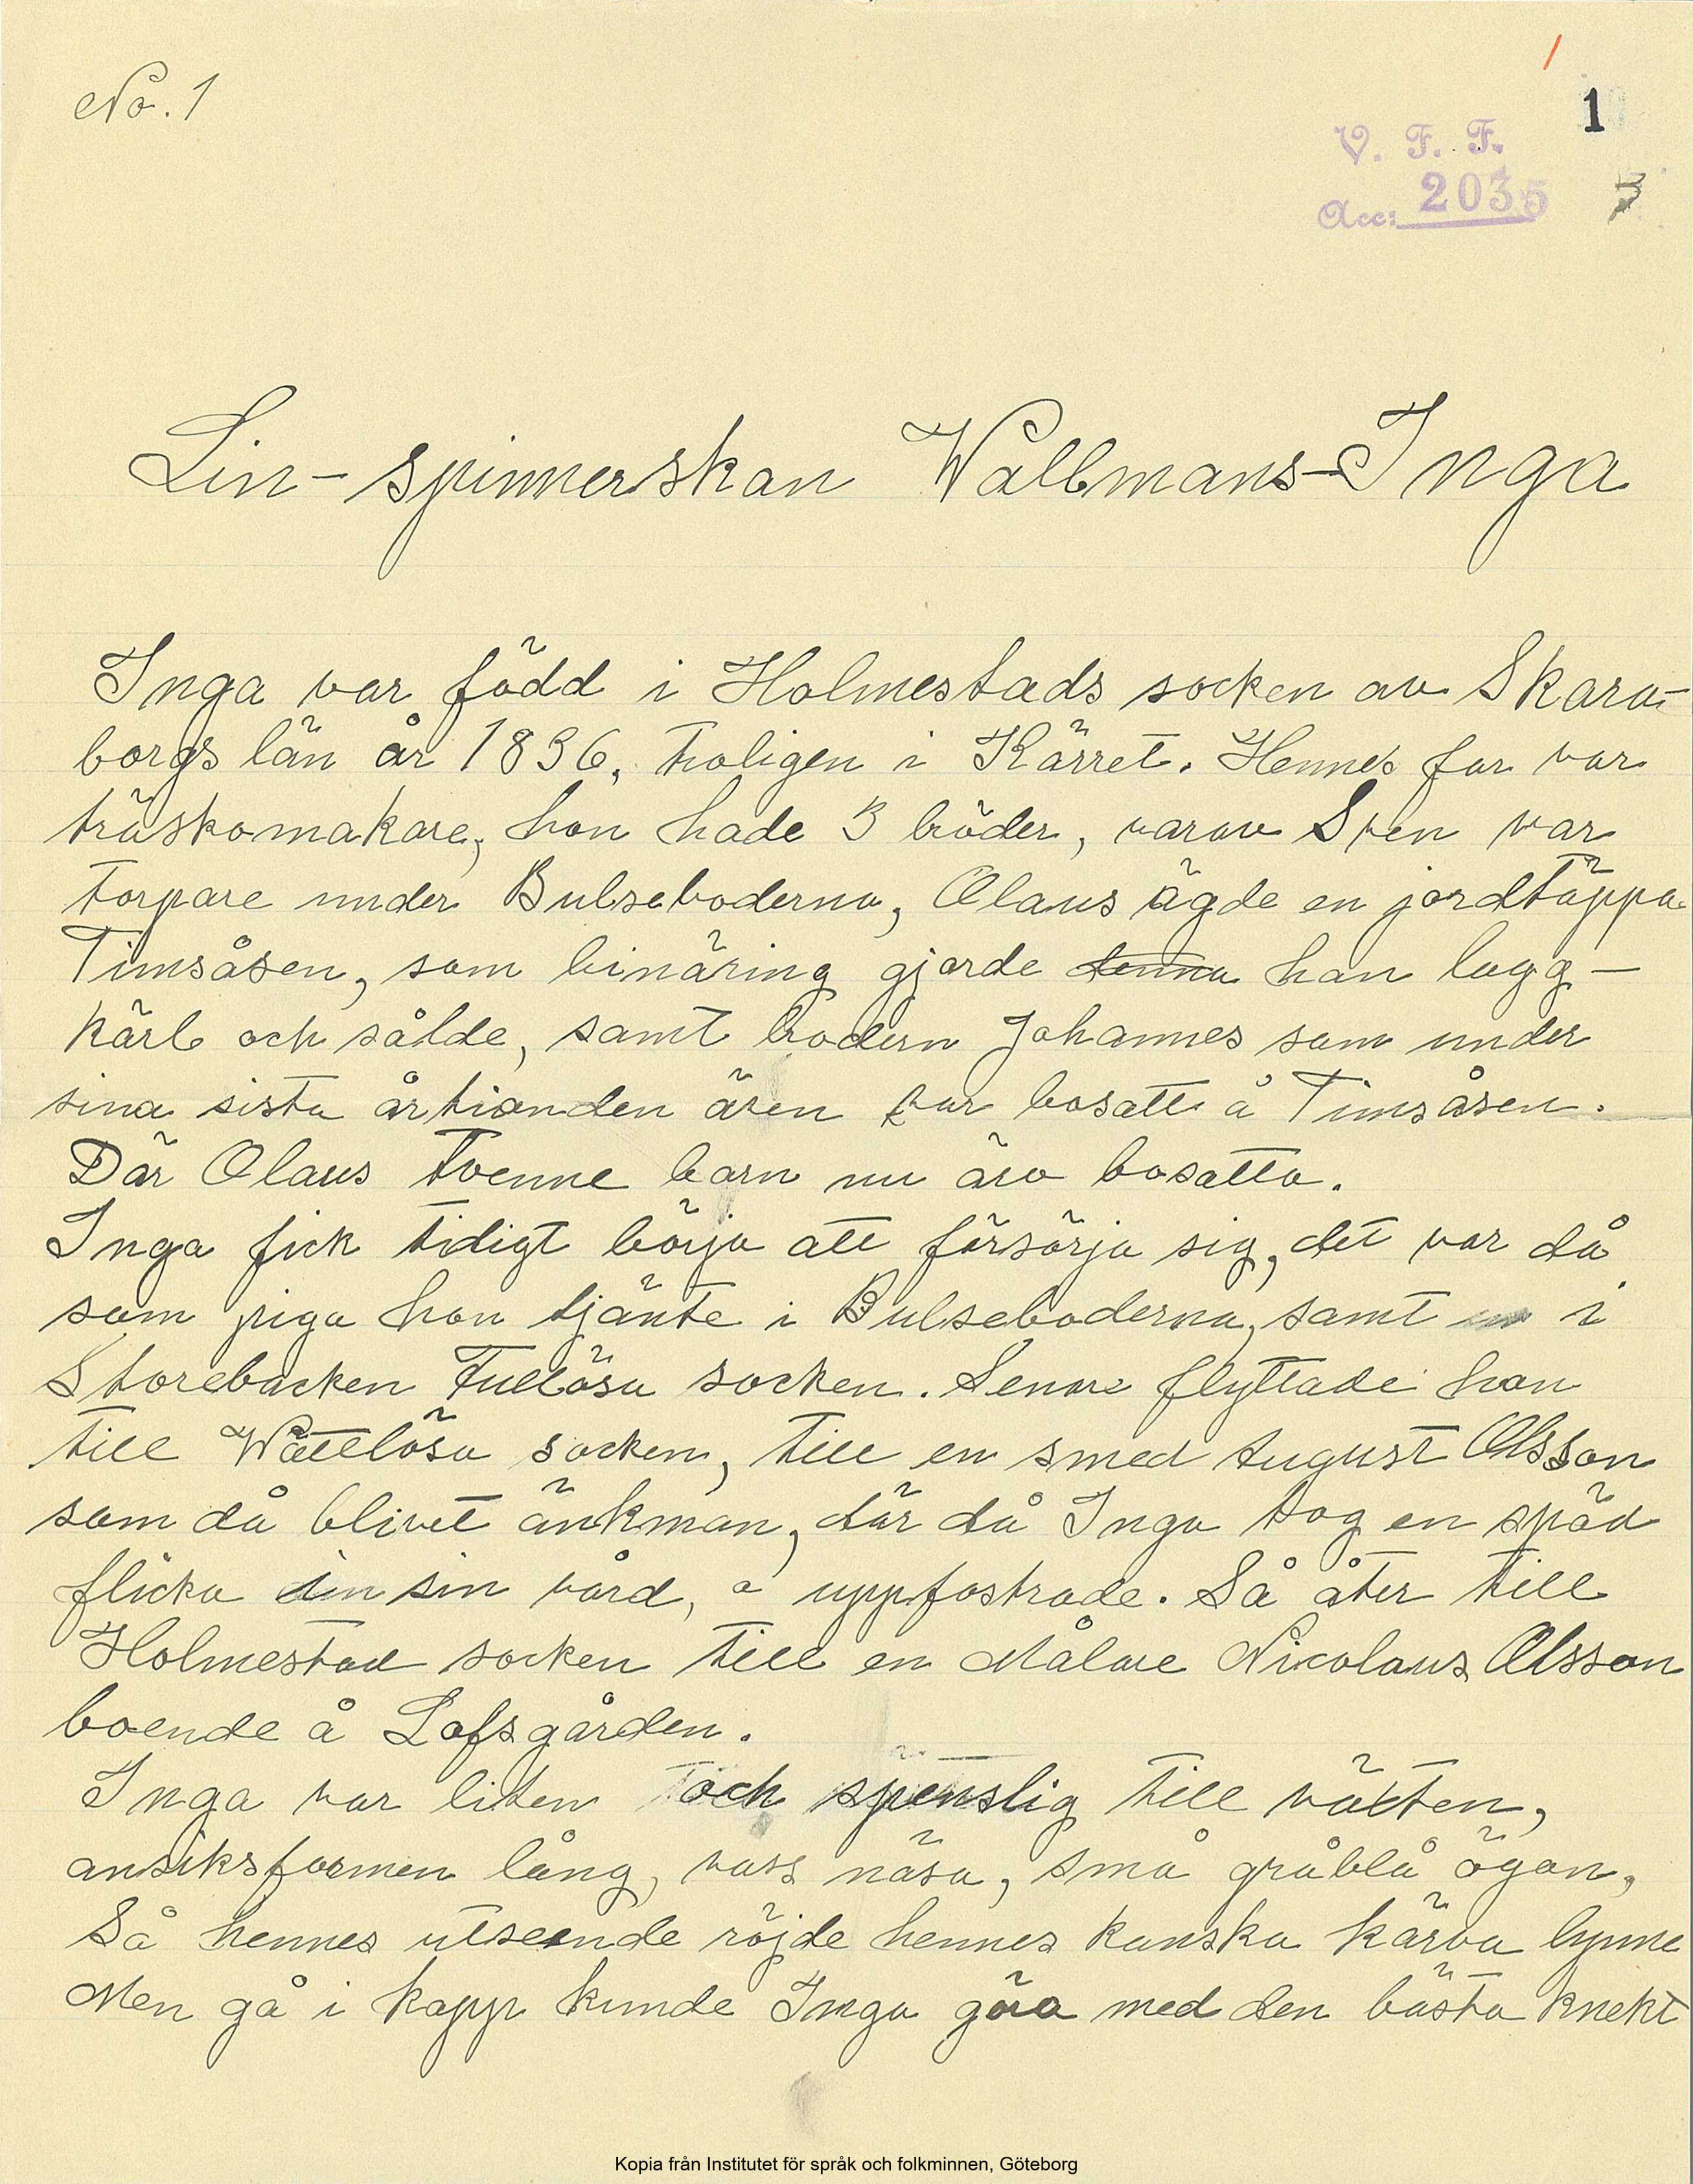 No. 1
1
V. F. F.
Acc: 2035
Lin-spinnerskan Wallmans-Inga
Inga var född i Holmestads socken av Skara-
borgs län år 1836, troligen i Kärret. Hennes far var
träskomakare, hon hade 3 bröder, varav Sven var
torpare under Bulseboderna, Olaus ägde en jordtäppa
Timsåsen, som binäring gjorde denna han lagg-
kärl och sålde, samt brodern Johannes som under
sina sista årtionden även var bosatt å Timsåsen.
Där Olaus tvenne barn nu äro bosatta.
Inga fick tidigt börja att försörja sig, det var då
som piga hon tjänte i Bulseboderna, samt i
Storebacken Fullösa socken. Senare flyttade hon
till Wättlösa socken, till en smed August Olsson
som då blivet änkman, där då Inga tog en späd
flicka i sin vård, o uppfostrade. Så åter till
Holmestad socken till en Målare Nicolaus Olsson
boende å Lofsgården.
Inga var liten och spenslig till växten,
ansiksformen lång, vass näsa, små gråblå ögon,
Så hennes utseende röjde hennes kanska kärva lynne
Men gå i kapp kunde Inga göra med den bästa knekt
Kopia från Institutet för språk och folkminnen, Göteborg